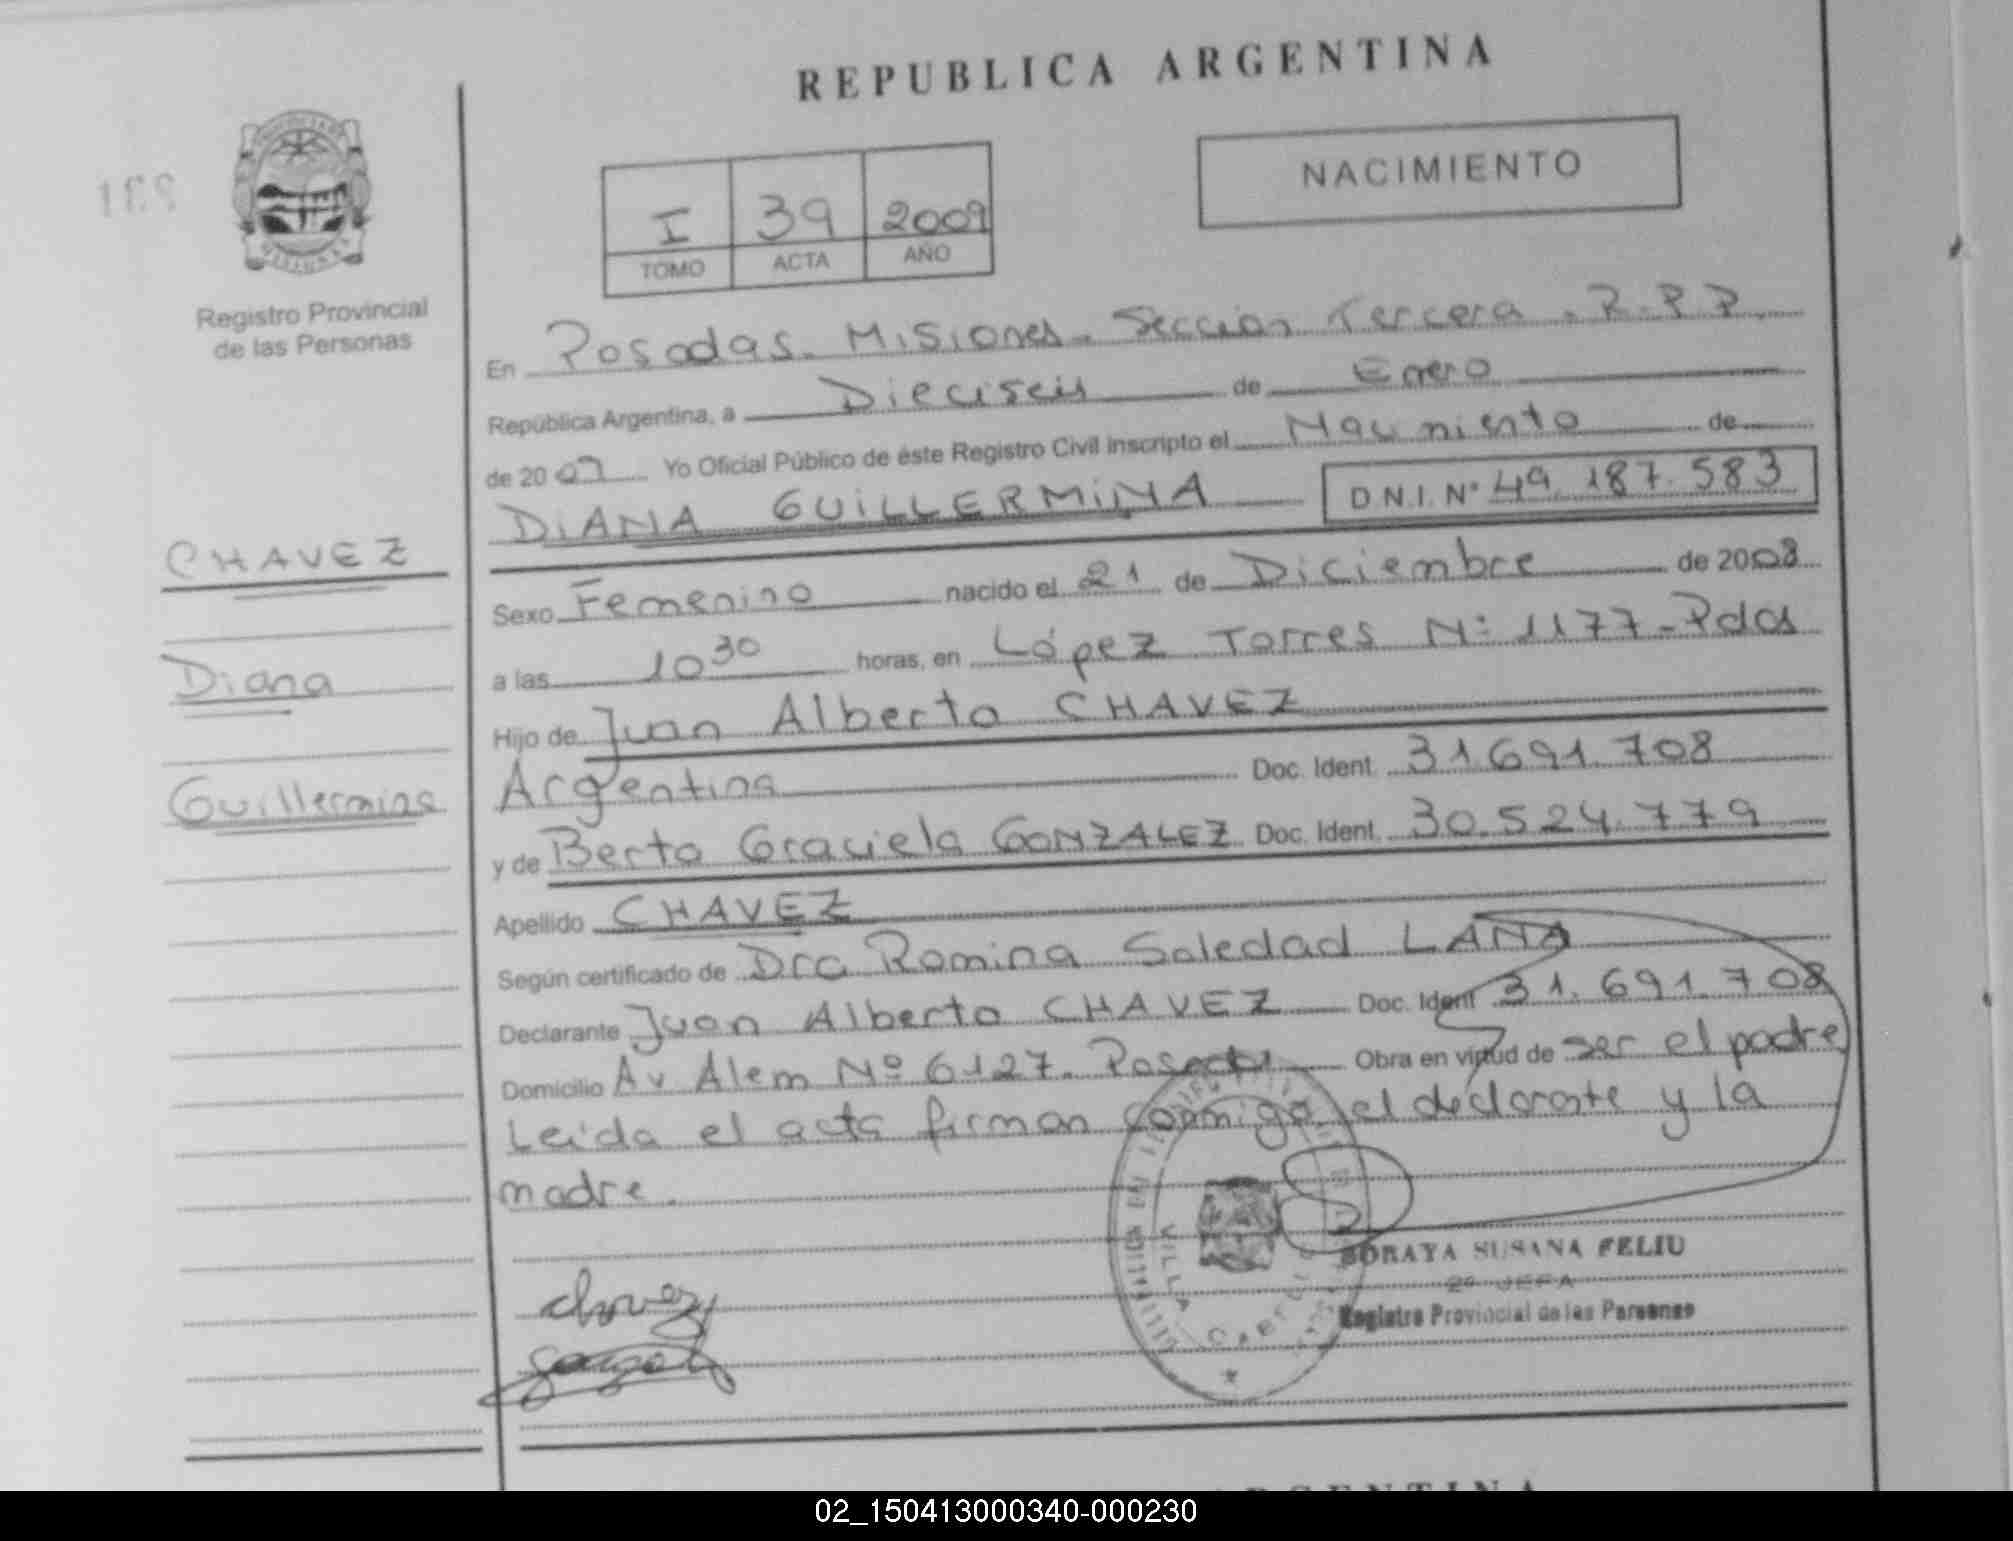 REPUBLICA ARGENTINA
NACIMIENTO
I 39 2009
TOMO ACTA AÑO
Registro Provincial
de las Personas
En Posadas. Misiones. Sección Tercera. R.P.P.
República Argentina, a Dieciseis de Enero
de 2009 Yo Oficial Público de éste Registro Civil inscripto el Nacimiento de
DIANA GUILLERMINA D.N.I. N° 49.187.583
CHAVEZ
Diana
Guillermina
Sexo Femenino nacido el 21 de Diciembre de 2008
a las 10 30 horas, en López Torres N° 1177 - Pdas
Hijo de Juan Alberto CHAVEZ
Argentina Doc. Ident. 31.691.708
y de Berta Graciela GONZALEZ Doc. Ident. 30.524.779
Apellido CHAVEZ
Según certificado de Dra Romina Soledad LANA
Declarante Juan Alberto CHAVEZ Doc. Ident 31.691.708
Domicilio Av Alem Nº 6127. Posadas Obra en virtud de ser el padre
Leida el acta firman conmigo, el declarante y la
madre.
SORAYA SUSANA FELIU
2º JEFA
Registro Provincial de las Personas
VILLA CABELLO
chavez
02_150413000340-000230